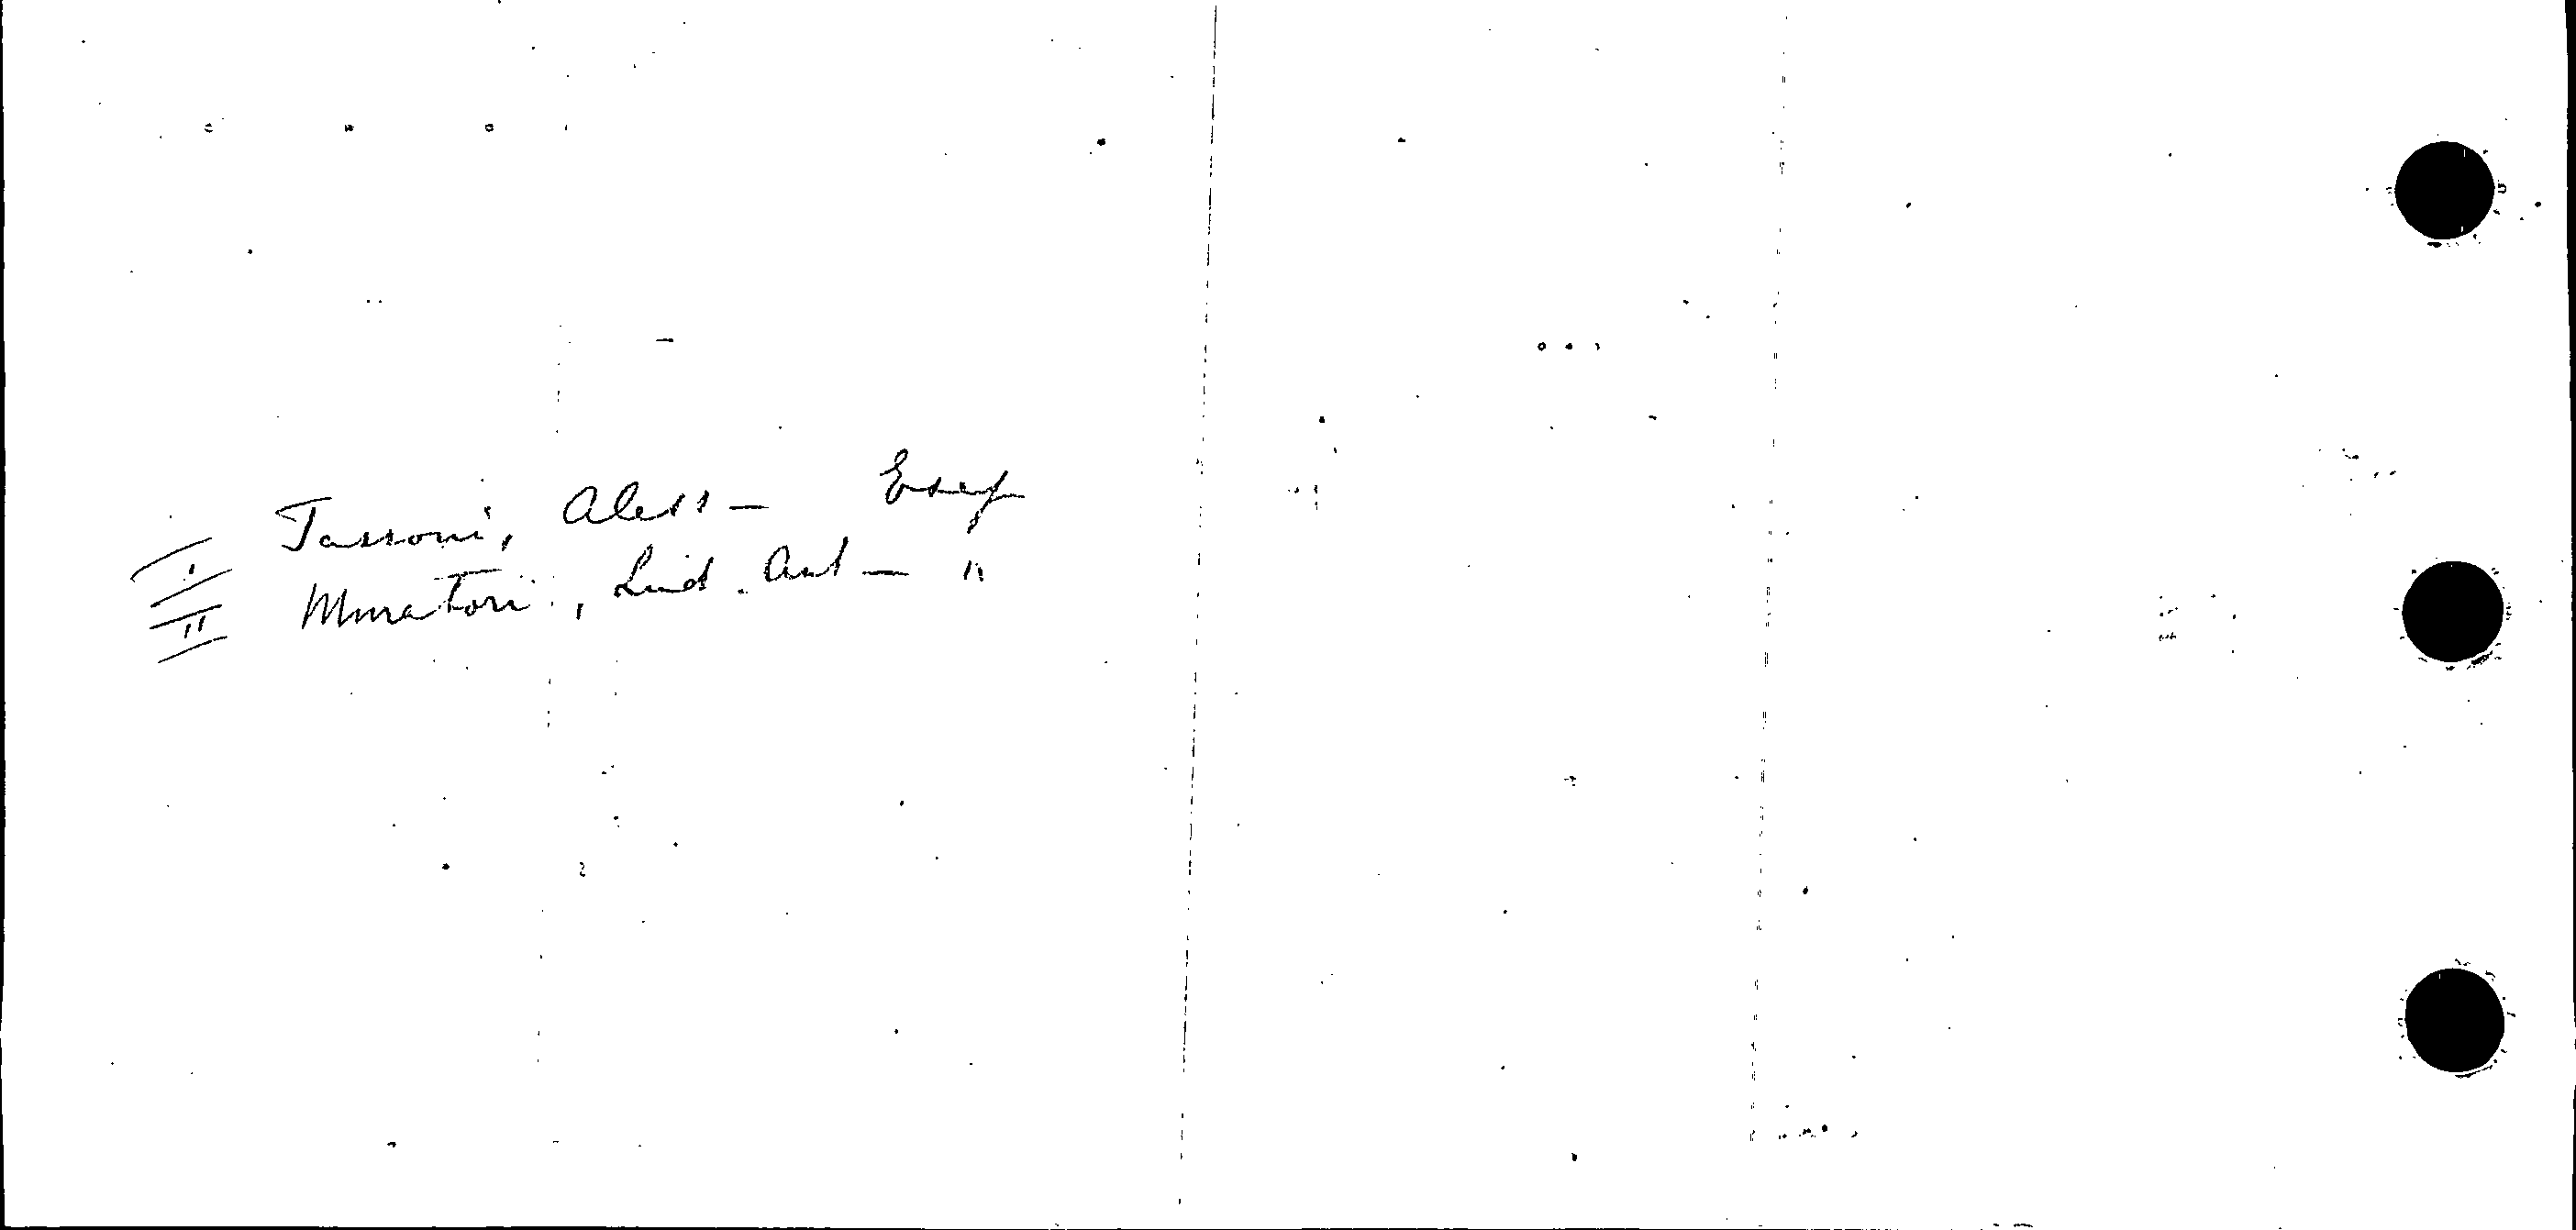 I Tassoni, Aless —
II Muratori, Lud. Ant — "